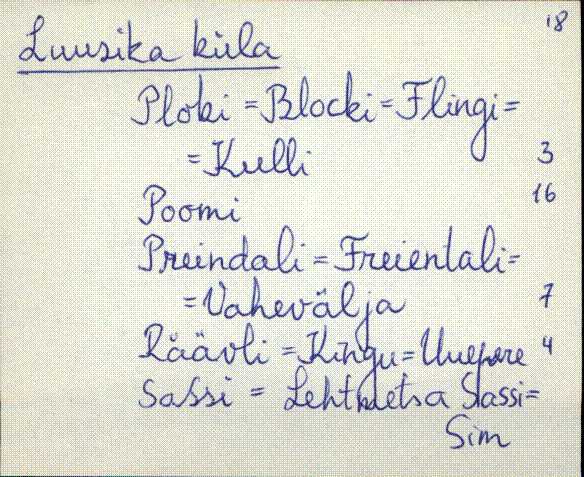 18
Luusika küla
Ploki = Blocki = Flingi =
= Kulli 3
Poomi 16
Preindali = Freientali =
= Vahevälja 7
Räävli = Kingu = Uuepere 4
Sassi = Lehtmetsa Sassi =
Sim